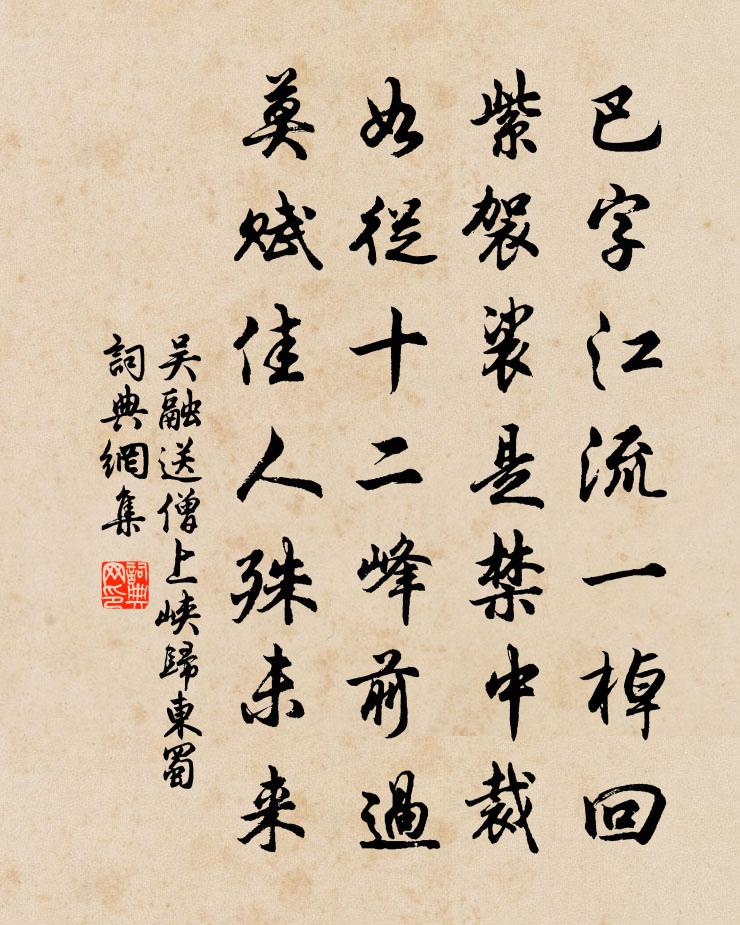 巴字江流一棹回
紫袈裟是禁中裁
如從十二峰前過
莫賦佳人殊未来
吳融送僧上峽歸東蜀
詞典網集
詞典网印